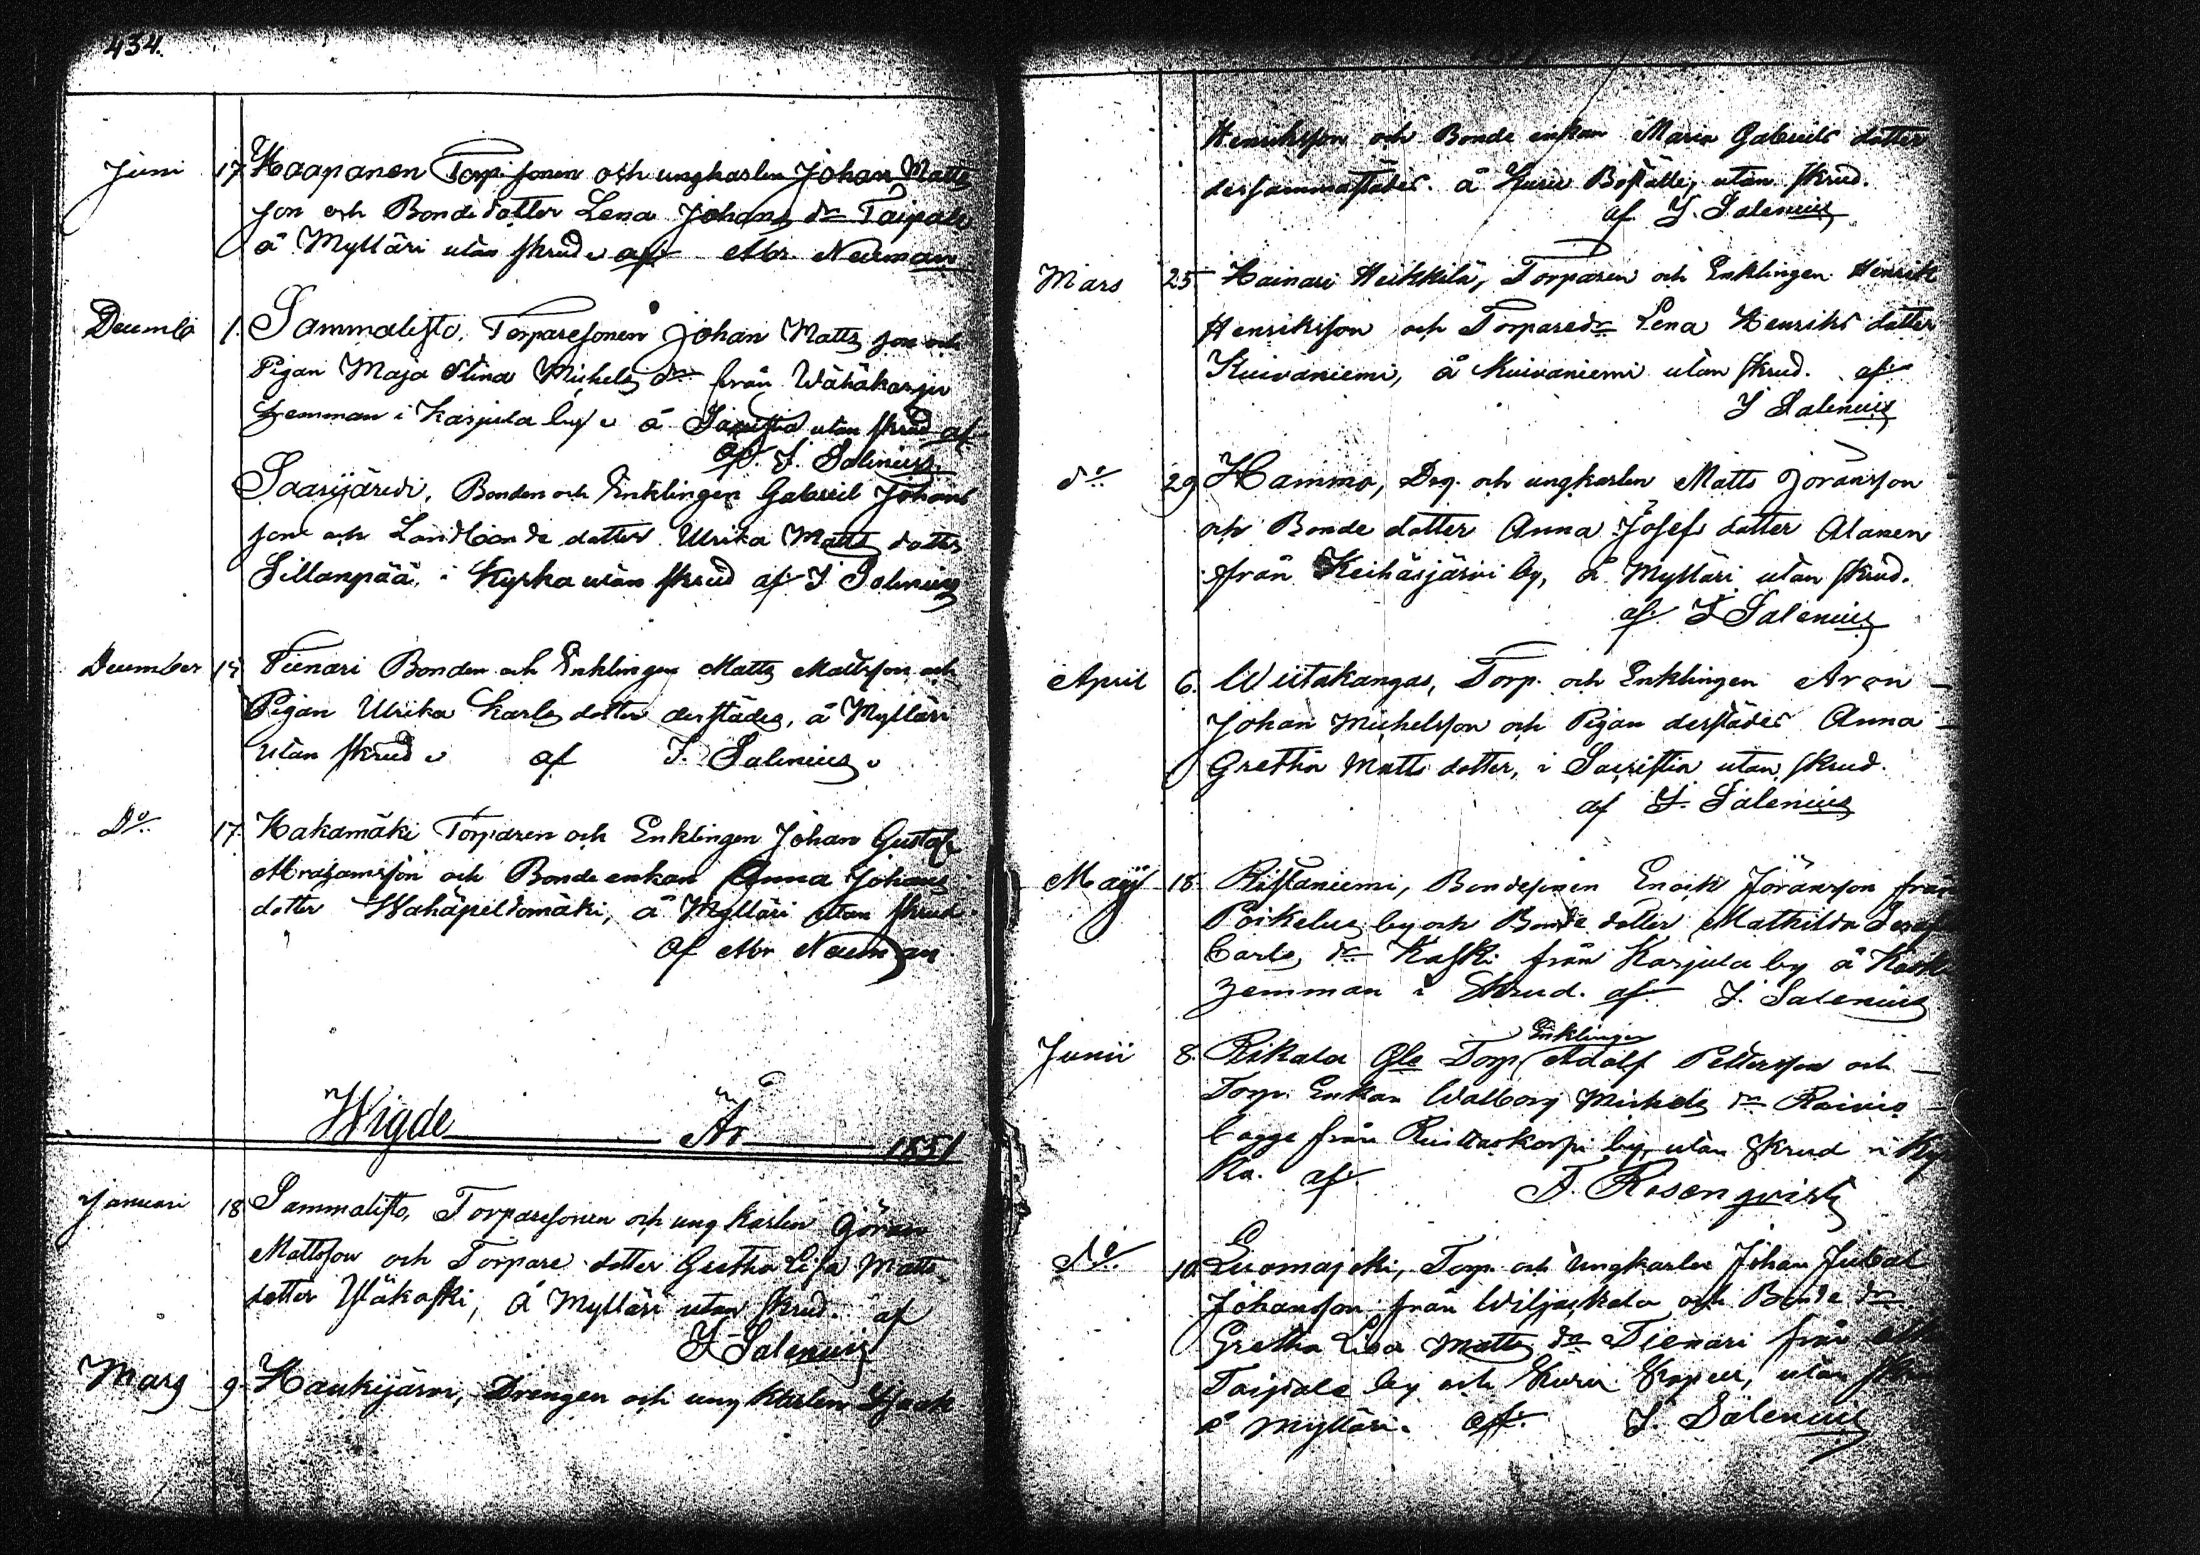 434.
Juni 17 Haapanen Torp. sonen och ungkarlen Johan Matts
son och Bondedotter Lena Johans dr Taipale
å Mylläri utan skrud af Abr. Neuman
Decemb 1. Sammalisto, Torparesonen Johan Matts son och
Pigan Maja Stina Michels dr från Wähäkarju
hemman i Karjula by å Sacristia utan skrud af
af. I. Salenius
Saarijärvi, Bonden och Enklingen Gabriel Johans
son och Landbonde dotter Ulrika Matts dotter
Sillanpää, i Kyrka utan skrud af I Salenius
December Tienari Bonden och Enklingen Matts Mattsson och
Pigan Ulrika Karls dotter derstädes, å Mylläri
utan skrud af I. Salenius
Do 17. Hakamäki Torparen och Enklingen Johan Gustaf
Abrahamsson och Bonde enkan Anna Johans
dotter Wähäpeldomäki, å Mylläri utan skrud.
af Abr Neuman
Wigde År 1851
Januari 18 Sammalisto, Torparesonen och ungkarlen Göran
Mattsson och Torpare dotter Gretha Lisa Matts
dotter Yläkoski, å Mylläri utan skrud. af
I Salenius
Mars 9. Haukijärvi, Drengen och ungkarlen Isaak
Henriksson och Bonde enkan Maria Gabriels dotter
dersammastädes. å Kuru Boställe, utan skrud.
af I. Salenius
Mars 25 Hainari Heikkilä, Torparen och Enklingen Henrik
Henriksson och Torparedr Lena Henriks dotter
Kuivaniemi, å Kuivaniemi utan skrud. af
I Salenius
do 29 Hammo, Drg. och ungkarlen Matts Jöransson
och Bonde dotter Anna Josefs dotter Alanen
från Keihäsjärvi by, å Mylläri utan skrud.
af I Salenius
April 6. Wiitakangas, Torp. och Enklingen Aron
Johan Michelsson och Pigan derstädes Anna
Gretha Matts dotter, i Sacristia utan skrud.
af I. Salenius
Maij 18 Ristaniemi, Bondesonen Enock Jöransson från
Poikelus by och Bonde dotter Mathilda
Carls dr Kaski från Karjula by å
hemman i Skrud. af I. Salenius
Junii 8. Rikala Torp. Enklingen Adolf Pettersson och
Torp. Enkan Walborg Michels dr
från Ruittaskorpi by, utan skrud i Kyr
ka. af F. Rosenqvist
do. 10. Luomajoki, Torp. och Ungkarlen Johan Jubal
Johansson från Wiljakkala och Bonde dr
Gretha Lisa Matts dr Tienari från
Taipale by och Kuru Kapell, utan
å Mylläri. af. I. Salenius